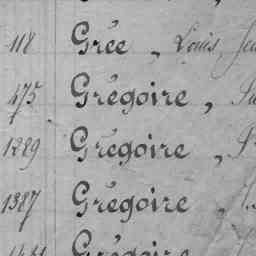 118 Grée, Louis, Jea
475 Grégoire,
1289 Grégoire,
1387 Grégoire,
Grégoire